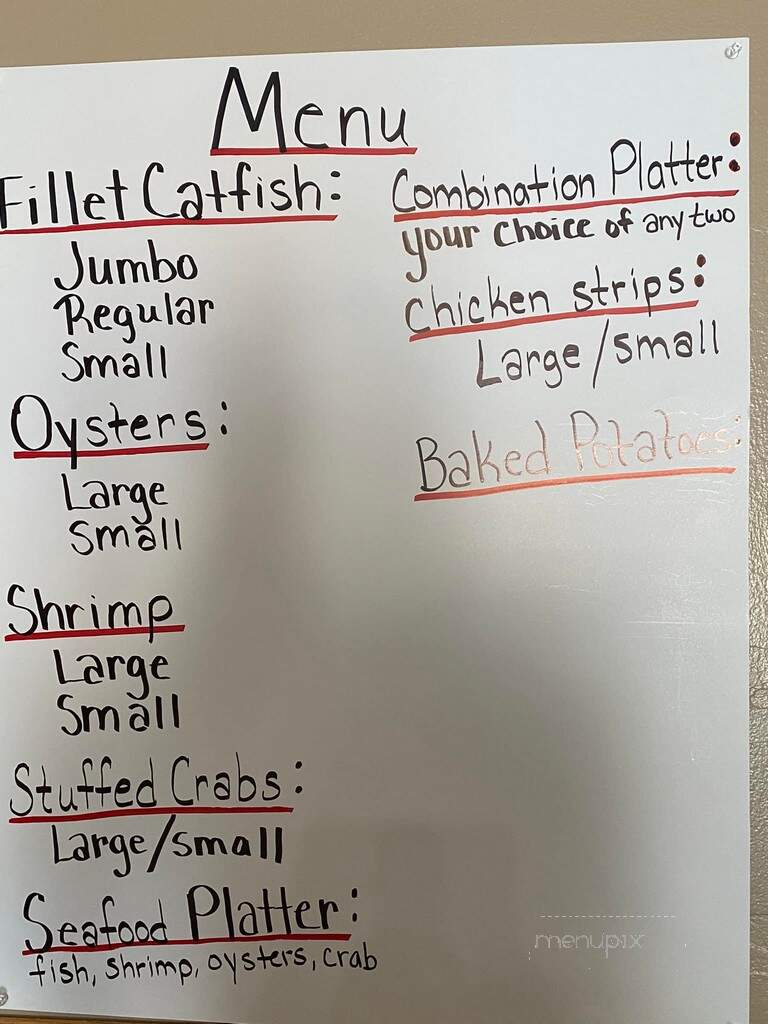 Menu
Fillet Catfish:
Jumbo
Regular
Small
Oysters:
Large
Small
Shrimp
Large
Small
Stuffed Crabs:
Large/small
Seafood Platter:
fish, shrimp, oysters, crab
Combination Platter:
your choice of any two
Chicken strips:
Large/small
Baked Potatoes:
menupix